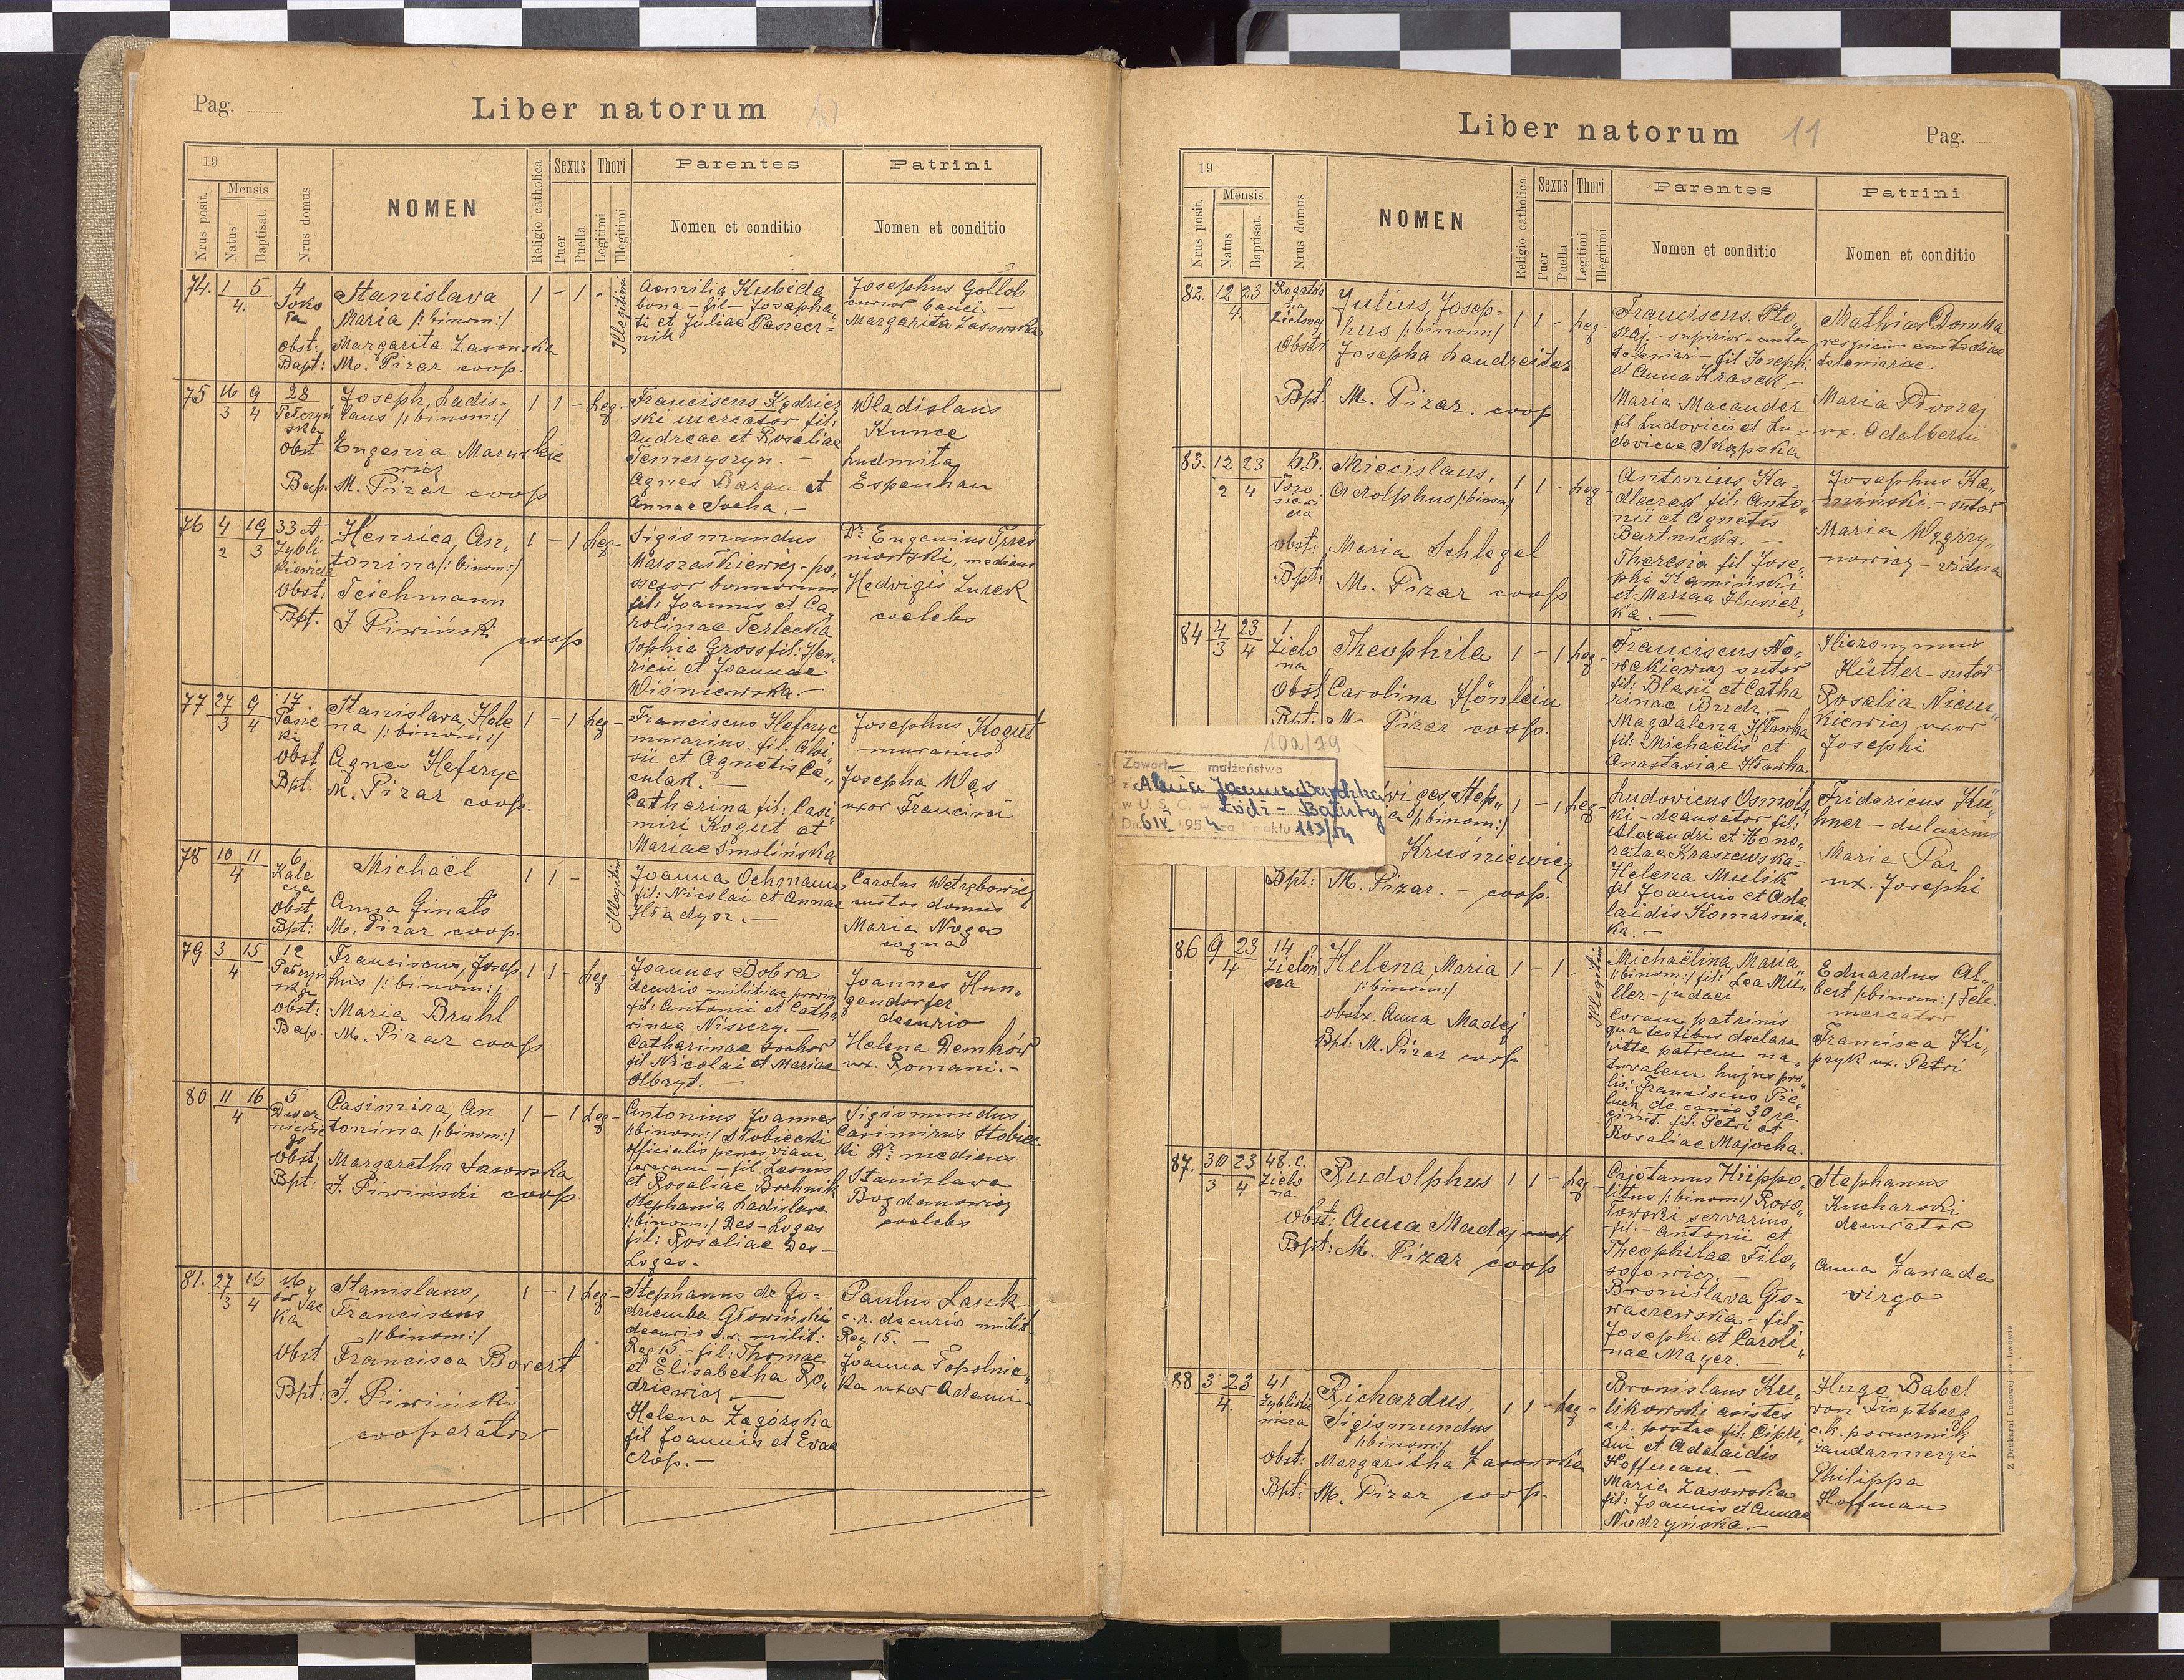 Pag.
Liber natorum
10
19
Nrus posit.
Mensis
Natus
Baptisat.
Nrus domus
NOMEN
Religio catholica
Sexus
Puer
Puella
Thori
Legitimi
Illegitimi
Parentes
Nomen et conditio
Patrini
Nomen et conditio
74. 1 5 4
4.
Stanislava
Maria /:binom:/
Obst: Margarita Zasowska
Bapt: M. Pizar coop.
1 - 1 - Illegitimi
Aemilia Kubida
bona - fil - Josapha„
ti et Juliae Pasiecz=
nik
Josephus Gollob
cursor banci -
Margarita Zasowska
75 16 9 28
3 4 Pełczyń
ska
Joseph, Ladis-
laus /:binom:/
Obst Eugenia Marunkie
wicz
Bap. M. Pizar coop
1 1 - Leg -
Franciscus Kędzier
ski mercator fil:
Andreae et Rosaliae
Temeryszyn. -
Agnes Baran et
Annae Socha. -
Wladislaus
Kunce
Ludmiła
Espenhan
76 4 19 33 A
2 3 Zybli
kiewicza
Henrica, An„
tonina /:binom:/
Obst: Teichmann
Bpt. J Piwiński coop
1 - 1 Leg -
Sigismundus
Marszałkiewicz - po„
ssesor bonnorum
fil: Joannis et Ca„
rolinae Terlecka
Sophia Gross fil: Hen„
ricii et Joannae
Wiśniewska. -
Dr Eugenius Trzes
niowski, medicus
Hedvigis Turek
coelebs
77 27 9 17
3 4 Pasie
ki
Stanislava, Hele
na /:binom:/
Obst Agnes Heferyc
Bpt. M. Pizar coop.
1 - 1 Leg -
Franciscus Heferyc
murarius - fil. Aloi
sii et Agnetis Ce„
culak. -
Catharina fil: Casi„
miri Kogut et
Mariae Smolińska
Josephus Kogut
murarius
Josepha Wąs
uxor Francisci
78 10 11 6
4 Kale
cza
Michaël
Obst Anna Ginats
Bpt: M. Pizar coop.
1 1 - Illegitimi
Joanna Ochmann
fil: Nicolai et Annae
Hładysz. -
Carolus Wetrębowicz
custos domus
Maria Noga
79 3 15 12
4 Pełczyń
ska
Franciscus, Josep
hus /:binom:/
Obst: Maria Bruhl
Bap. M. Pizar coop
1 1 - Leg -
Joannes Bobra
decurio militiae provin
fil: Antonii et Catha
rinae Niszczy. -
Catharinae Zochor
fil Nicolai et Mariae
Olbryt. -
Joannes Hun„
gendorfer
decurio
Helena Demków
ux. Romani. -
80 11 16 5
4 Dwer
nickie
go
Casimira, An
tonina /:binom:/
Obst: Margaretha Zasowska
Bpt: J. Piwiński coop
1 - 1 Leg -
Antonius Joannes
/:binom:/ Słobiecki
officialis penes viam
ferream - fil. Leonis
et Rosaliae Bochnik
Stephania Ladislava
/:binom:/ Des-Loges
fil: Rosaliae Des -
Loges. -
Sigismundus,
Casimirus Słobiec
ki Dr medicus
Stanislava
Bogdanowicz
coelebs
81. 27 16
3 4
Stanislaus,
Franciscus
/:binom:/
Obst Francisca Bovert
Bpt: J. Piwiński
cooperator
1 - 1 Leg -
Stephanus de Go=
dziemba Głowiński
decurio c.r. milit:
Reg 15. - fil: Thomae
et Elisabetha Ro„
dziewicz. -
Helena Zagórska
fil Joannis et Evae
Crop. -
Paulus Lauk
c.r. decurio milit.
Reg 15. -
Joanna Topolnic„
ka uxor Adami -
Liber natorum
11
Pag.
19
Nrus posit.
Mensis
Natus
Baptisat.
Nrus domus
NOMEN
Religio catholica
Sexus
Puer
Puella
Thori
Legitimi
Illegitimi
Parentes
Nomen et conditio
Patrini
Nomen et conditio
82. 12 23 Rogatka
4 na
Zielonej
Julius, Josep=
hus /:binom:/
Obstx Josepha Landreiter
Bpt. M. Pizar. coop
1 1 - Leg -
Franciscus. Pło„
szaj. - supirior - custo
teleniari - fil Josephi
et Anna Krasek. -
Maria Macander
fil Ludovicii et Lu=
dovicae Skąpska
Mathias Domka
respicien custodiae
teloniariae
Maria Płoszaj
ux. Adalbertii
83. 12 23 b.B.
2 4
Miecislaus,
Adolphus /:binom:/
Obst: Maria Schlegel
Bpt: M. Pizar coop
1 1 - Leg -
Antonius Ka=
dlecek fil: Anto„
nii et Agnetis
Bartnicka. -
Theresia fil Jose„
phi Kamiński
et Mariae Husier„
ka. -
Josephus Ka„
miński. - sutor
Maria Węgrzy„
nowicz - vidua
84 4 23 1
3 4 Zielo
na
Theophila
Obst Carolina Hönlein
Bpt: M. Pizar coop.
1 - 1 Leg -
Franciscus No„
wakiewicz sutor
fil: Blasii et Catha
rinae Budz. -
Magdalena Hławka
fil: Michaëlis et
Anastasiae Hławka
Hieronymus
Hütter - sutor
Rosalia Nicu„
kiewicz uxor
Josephi
10a/79
Zawarł małżeństwo
z Joanna
w U. S. C. w Łodzi - Bałuty
Dn. 6 IV 1954 za Nr aktu 113/54
Step„
/:binom:/
Kruśniewicz
Bpt: M. Pizar. - coop.
1 - 1 Leg -
Ludovicus Osmóls
ki - deausator fil:
Alexandri et Hono„
ratae Kraszewska -
Helena Mulik
fil Joannis et Ade
laidis Komarnic„
ka. -
Fridericus Kü„
hner - dulciarius
Maria Par
ux. Josephi
86 9 23 14
4 Zielon
na
Helena, Maria
/:binom:/
obstx. Anna Madej
Bpt: M. Pizar coop
1 - 1 - Illegitimi
Michaëlina, Maria
/:binom:/ fil: Lea Mü„
ller - judaei
Coram patrinis
qua testibus declara
vitte patrem na„
turalem hujus pro„
lis: Franciscus Pie„
luch de canio 30 re
gimt. fil: Petri et
Rosaliae Majocha.
Eduardus Al„
bert /:binom:/ Fele
mercator
Francisca Ki„
pryk ux. Petri
87. 30 23 48.c.
3 4 Zielo
na
Rudolphus
Obst: Anna Madej
Bpt: M. Pizar coop
1 1 - Leg -
Cajetanus Hippo„
litus /:binom:/ Roso„
łowski servarius
- fil. - Antonii et
Theophilae Filo„
sofowicz. -
Bronislava Gło=
waczewska - fil„
Josephi et Caroli„
nae Mayer. -
Stephanus
Kucharski
decurator
Anna Zawada
virgo
88 3 23 41
4. Zyblikie
wicza
Richardus,
Sigismundus
/:binom:/
Obst: Margaritha Zasowska
Bpt: M. Pizar coop.
1 1 - Leg -
Bronislaus Ku„
likowski asistes
c.r. postae fil: Cipri„
ani et Adelaidis
Hoffman. -
Maria Zasowska
fil: Joannis et Annae
Nodzyńska. -
Hugo Babel
von Fioptberg
c.k. porucznik
żandarmeryi
Philippa
Hoffman
Z Drukarni Ludowej we Lwowie.